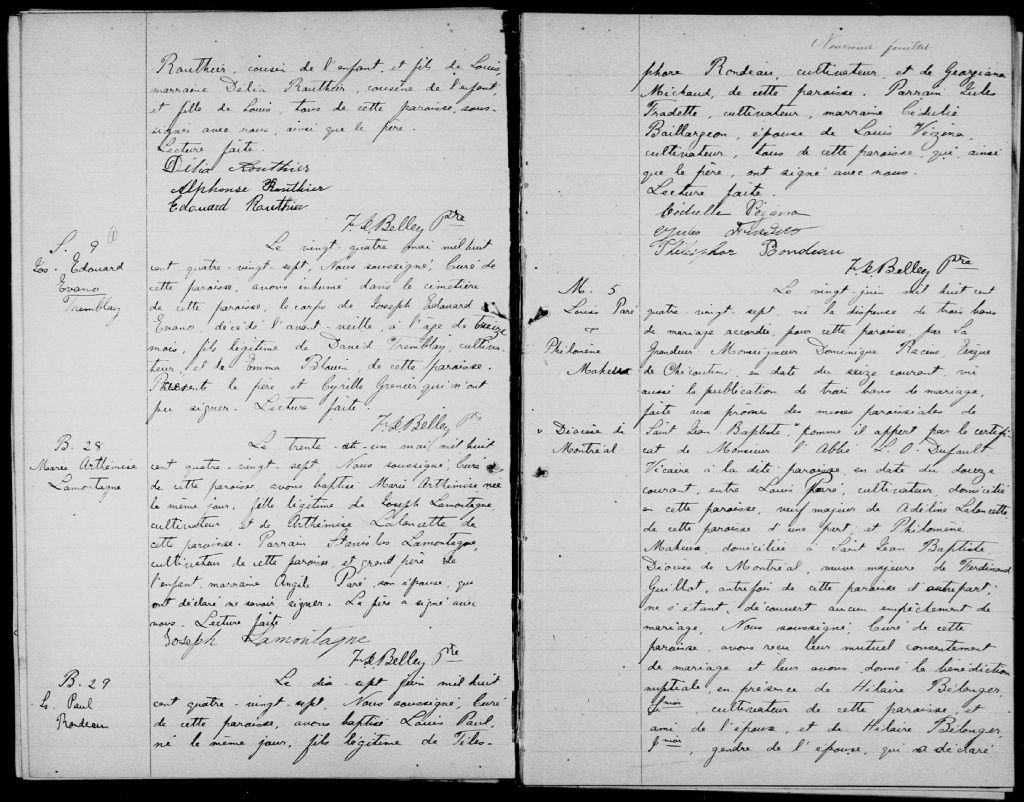 Routhier, cousin de l'enfant, et fils de Louis,
marraine Délia Routhier, cousine de l'enfant
et fille de Louis, tous de cette paroisse, sous-
signés avec nous, ainsi que le père.
Lecture faite.
Délia Routhier
Alphonse Routhier
Edouard Routhier
F. X. Belley Ptre
S. 9
Jos. Edouard
Evano
Tremblay
Le vingt-quatre mai mil huit
cent quatre-vingt-sept, Nous soussigné, Curé de
cette paroisse, avons inhumé dans le cimetière
de cette paroisse, le corps de Joseph Edouard
Evano, décédé l'avant veille, à l'âge de treize
mois, fils légitime de David Tremblay, cultiva-
teur, et de Emma Blouin, de cette paroisse.
Présents le père et Cyrille Grenier qui n'ont
pu signer. Lecture faite.
F. X. Belley Ptre
B. 28
Marie Arthémise
Lamontagne
Le trente-et-un mai mil huit
cent quatre-vingt-sept, Nous soussigné, Curé
de cette paroisse avons baptisé Marie Arthémise née
le même jour, fille légitime de Joseph Lamontagne
cultivateur et de Arthémise Lalancette de
cette paroisse. Parrain Stanislas Lamontagne,
cultivateur de cette paroisse, et grand père de
l'enfant, marraine Angèle Paré, son épouse, qui
ont déclaré ne savoir signer. Le père a signé avec
nous. Lecture faite
Joseph Lamontagne
F. X. Belley Ptre
B. 29
L. Paul
Rondeau
Le dix-sept juin mil huit
cent quatre-vingt-sept, Nous soussigné, Curé
de cette paroisse, avons baptisé Louis Paul,
né le même jour, fils légitime de Téles-
Neuvième feuillet
phore Rondeau, cultivateur, et de Georgiana
Michaud, de cette paroisse. Parrain Jules
Fradette, cultivateur, marraine Cédulie
Baillargeon, épouse de Louis Vézina,
cultivateur, tous de cette paroisse, qui, ainsi
que le père, ont signé avec nous.
Lecture faite.
Cédulle Vézina
Thélésphor Rondeau
F. X. Belley Ptre
M. 5
Louis Paré
&
Philomène
Maheux
Le vingt-juin mil huit cent
quatre-vingt-sept, vu la dispense de trois bans
de mariage accordée, pour cette paroisse, par Sa
Grandeur Monseigneur Dominique Racine, Evêque
de Chicoutimi, en date du seize courant, vu
aussi la publication de trois bans de mariage,
faite aux prônes des messes paroissiales de
v Diocèse de
Montréal
"Saint Jean Baptiste" comme il appert par le certifi-
cat de Monsieur l'Abbé L. O. Dufault,
Vicaire à la dite paroisse, en date du douze
courant, entre Louis Paré, cultivateur, domicilié
en cette paroisse, veuf majeur de Adéline Lalancette,
de cette paroisse d'une part, et Philomène
Maheux, domiciliée à Saint Jean Baptiste,
Diocèse de Montréal, veuve majeure de Ferdinand
Guillot, autrefois de cette paroisse d'autre part;
ne s'étant découvert aucun empêchement de
mariage, Nous soussigné, Curé de cette
paroisse, avons reçu leur mutuel consentement
de mariage et leur avons donné la bénédiction
nuptiale, en présence de Hilaire Bélanger,
, cultivateur de cette paroisse, et
ami de l'époux, et de Hilaire Bélanger,
, gendre de l'épouse, qui a déclaré